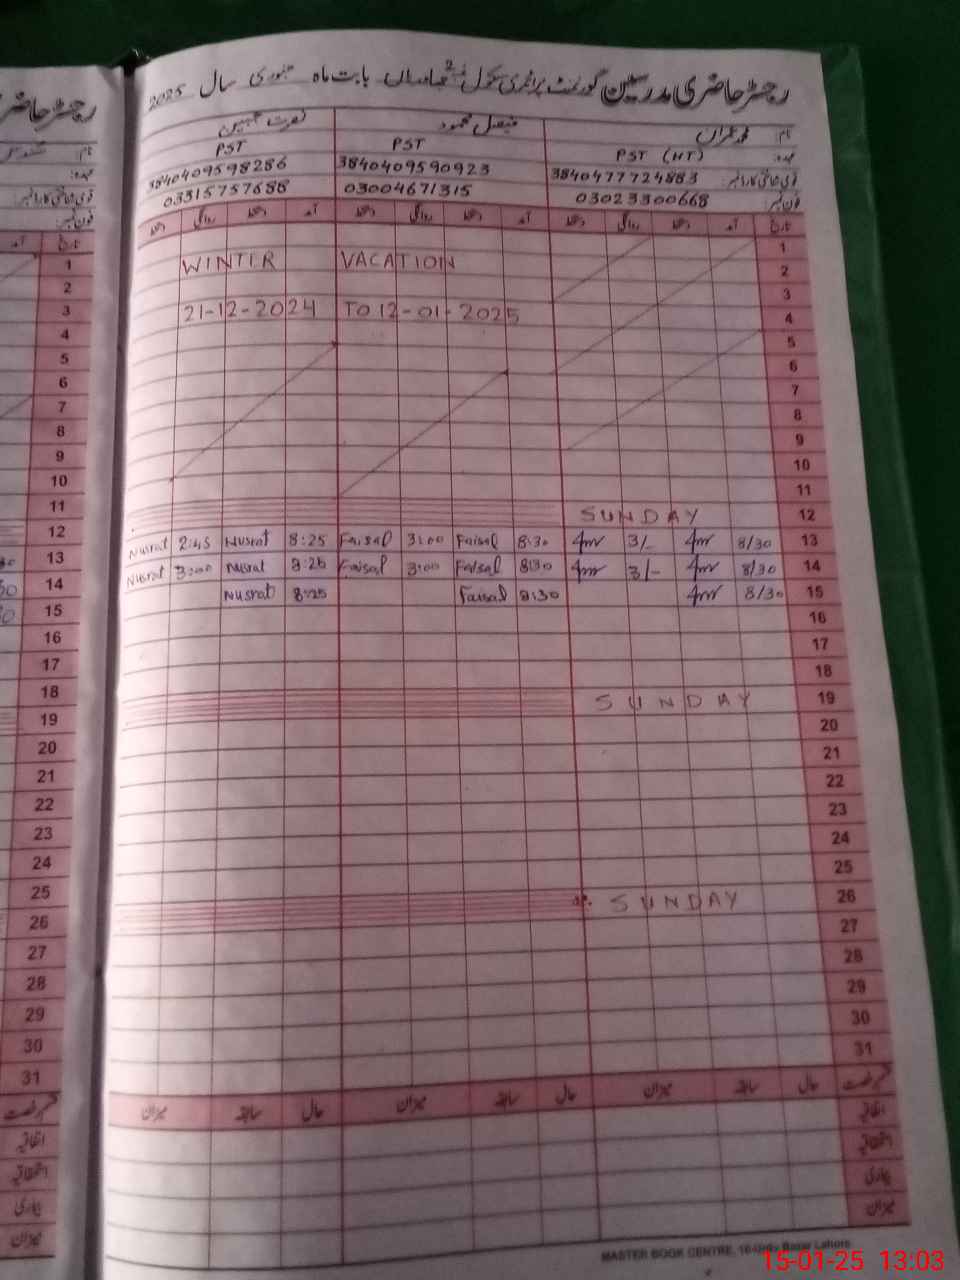 رجسٹر حاضری مدرسین گورنمنٹ پرائمری سکول بابت ماہ جنوری سال 2025
نام: محمد عمران فیصل محمود نصرت جبین
عہدہ: PST (HT) PST PST
قومی شناختی کارڈ نمبر: 3840477724883 3840409590923 3840409598286
فون نمبر: 03023300668 03004671315 03315757688
تاریخ آمد دستخط روانگی دستخط آمد دستخط روانگی دستخط آمد دستخط روانگی دستخط
1
WINTER VACATION 2
3
21-12-2024 TO 12-01-2025 4
5
6
7
8
9
10
11
SUNDAY 12
Nusrat 2:45 Nusrat 8:25 Faisal 3:00 Faisal 8:30 3/- 8/30 13
Nusrat 3:00 Nusrat 8:25 Faisal 3:00 Faisal 8:30 3/- 8/30 14
Nusrat 8:25 Faisal 8:30 8/30 15
16
17
18
SUNDAY 19
20
21
22
23
24
25
SUNDAY 26
27
28
29
30
31
قسم رخصت حال سابقہ میزان حال سابقہ میزان حال سابقہ میزان
اتفاقیہ
استحقاقیہ
بیماری
میزان
MASTER BOOK CENTRE, 16-Urdu Bazar Lahore
رجسٹر حاضری
نام:
عہدہ:
قومی شناختی کارڈ نمبر:
فون نمبر:
تاریخ آمد
1
2
3
4
5
6
7
8
9
10
11
12
13
14
15
16
17
18
19
20
21
22
23
24
25
26
27
28
29
30
31
قسم رخصت
اتفاقیہ
استحقاقیہ
بیماری
میزان
15-01-25 13:03